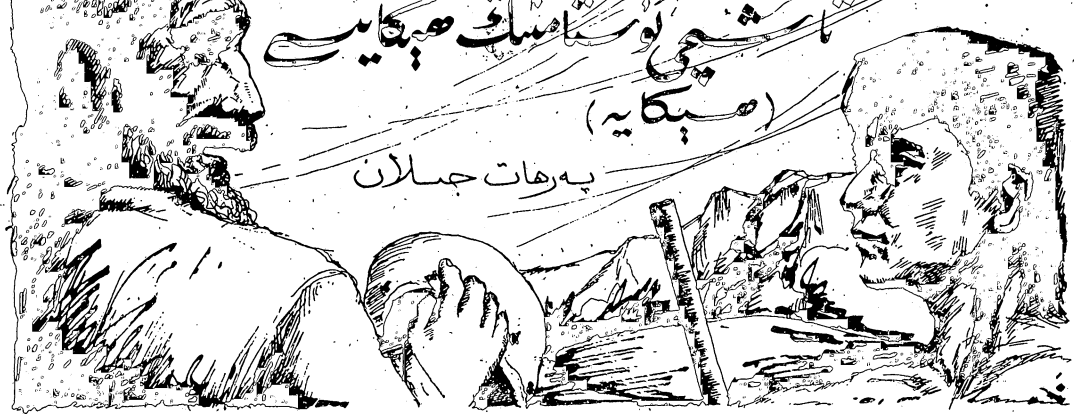 تاشچى ئۇستامنىڭ ھېكايىسى
(ھېكايە)
پەرھات جىلان